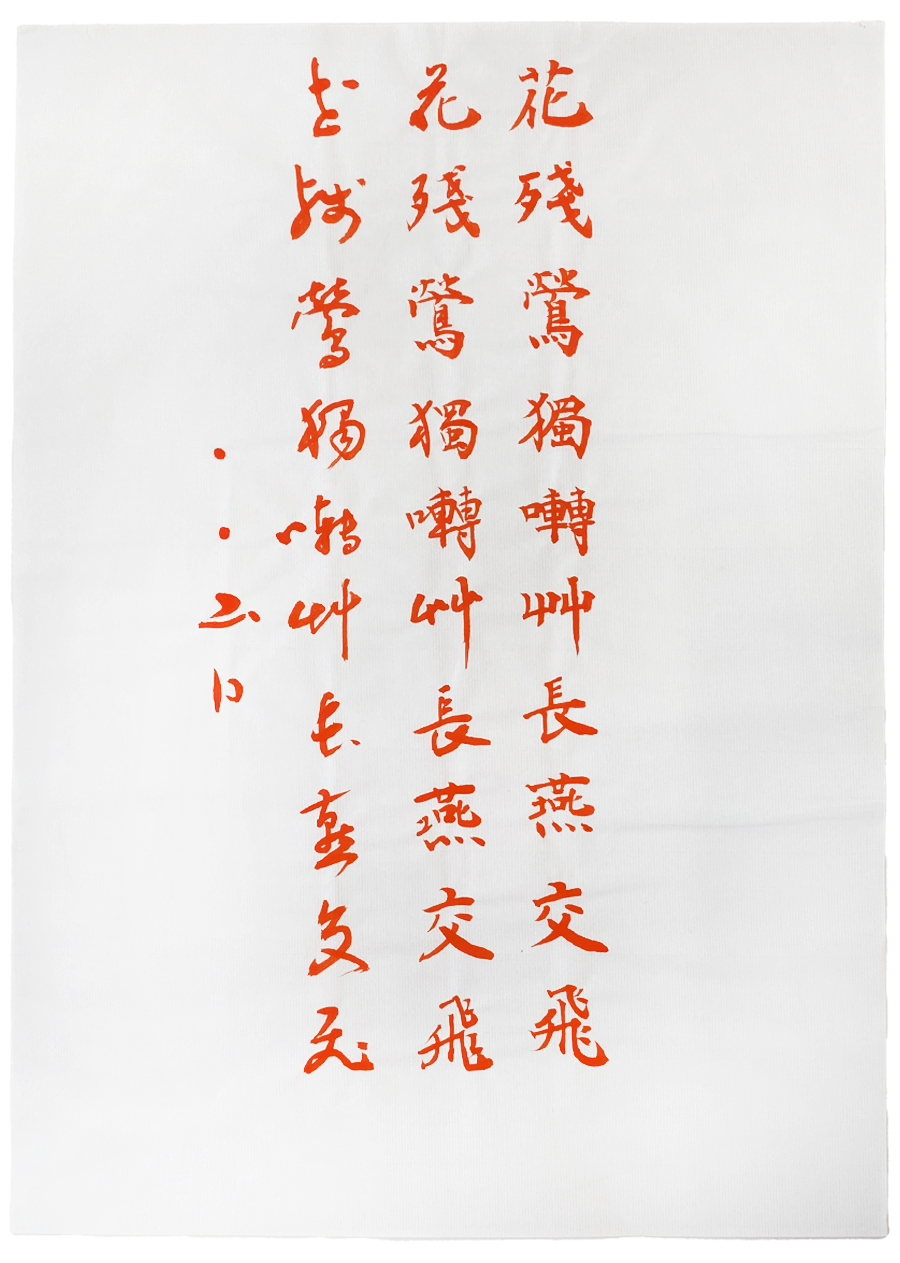 花殘鶯獨囀艸長燕交飛
花殘鶯獨囀艸長燕交飛
花殘鶯獨囀艸長燕交飛